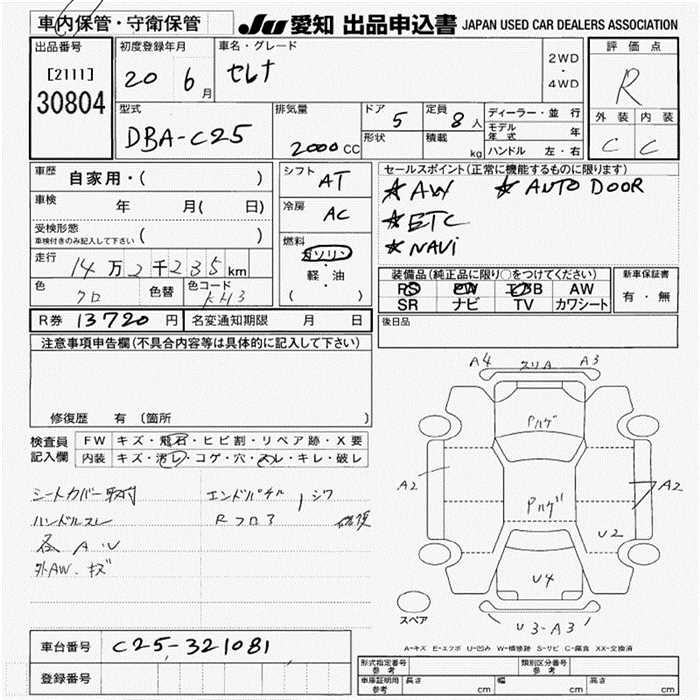 車内保管・守衛保管
JU 愛知 出品申込書 JAPAN USED CAR DEALERS ASSOCIATION
出品番号
[2111]
30804
初度登録年月
20 6月
車名・グレード
セレナ
2WD
・
4WD
評価点
R
外装 内装
C C
型式
DBA-C25
排気量
2000CC
ドア 5
形状
定員 8人
積載 kg
ディーラー・並行
モデル年式 年
ハンドル 左・右
車歴
自家用・( )
車検 年 月( 日)
受検形態
車検付きのみ記入して下さい ( )
走行 14万2千235km
色 クロ
色替
色コード KH3
シフト AT
冷房 AC
燃料
ガソリン
・
軽・油
( )
セールスポイント(正常に機能するものに限ります)
★AW ★AUTO DOOR
★ETC
★NAVi
装備品(純正品に限り〇をつけてください)
AW
SR ナビ TV カワシート
新車保証書
有・無
後日品
R券 13720円
名変通知期限 月 日
注意事項申告欄(不具合内容等は具体的に記入して下さい)
修復歴 有 (箇所
検査員記入欄
FW キズ・飛石・ヒビ割・リペア跡・X要
内装 キズ・汚レ・コゲ・穴・スレ・キレ・破レ
シートカバー取付
ハンドルスレ
各A・U
外AW・キズ
エンドパネル シワ
Rフロア 修復
A4 スリA A3
Pハゲ
A2
Pハゲ
A2
U2
U4
U3-A3
スペア
A-キズ E-エクボ U-凹み W-補修跡 S-サビ C-腐食 XX-交換済
車台番号 C25-321081
登録番号
形式指定番号 参考
類別区分番号 参考
車庫証明用 参考 長さ cm 幅 cm 高さ cm